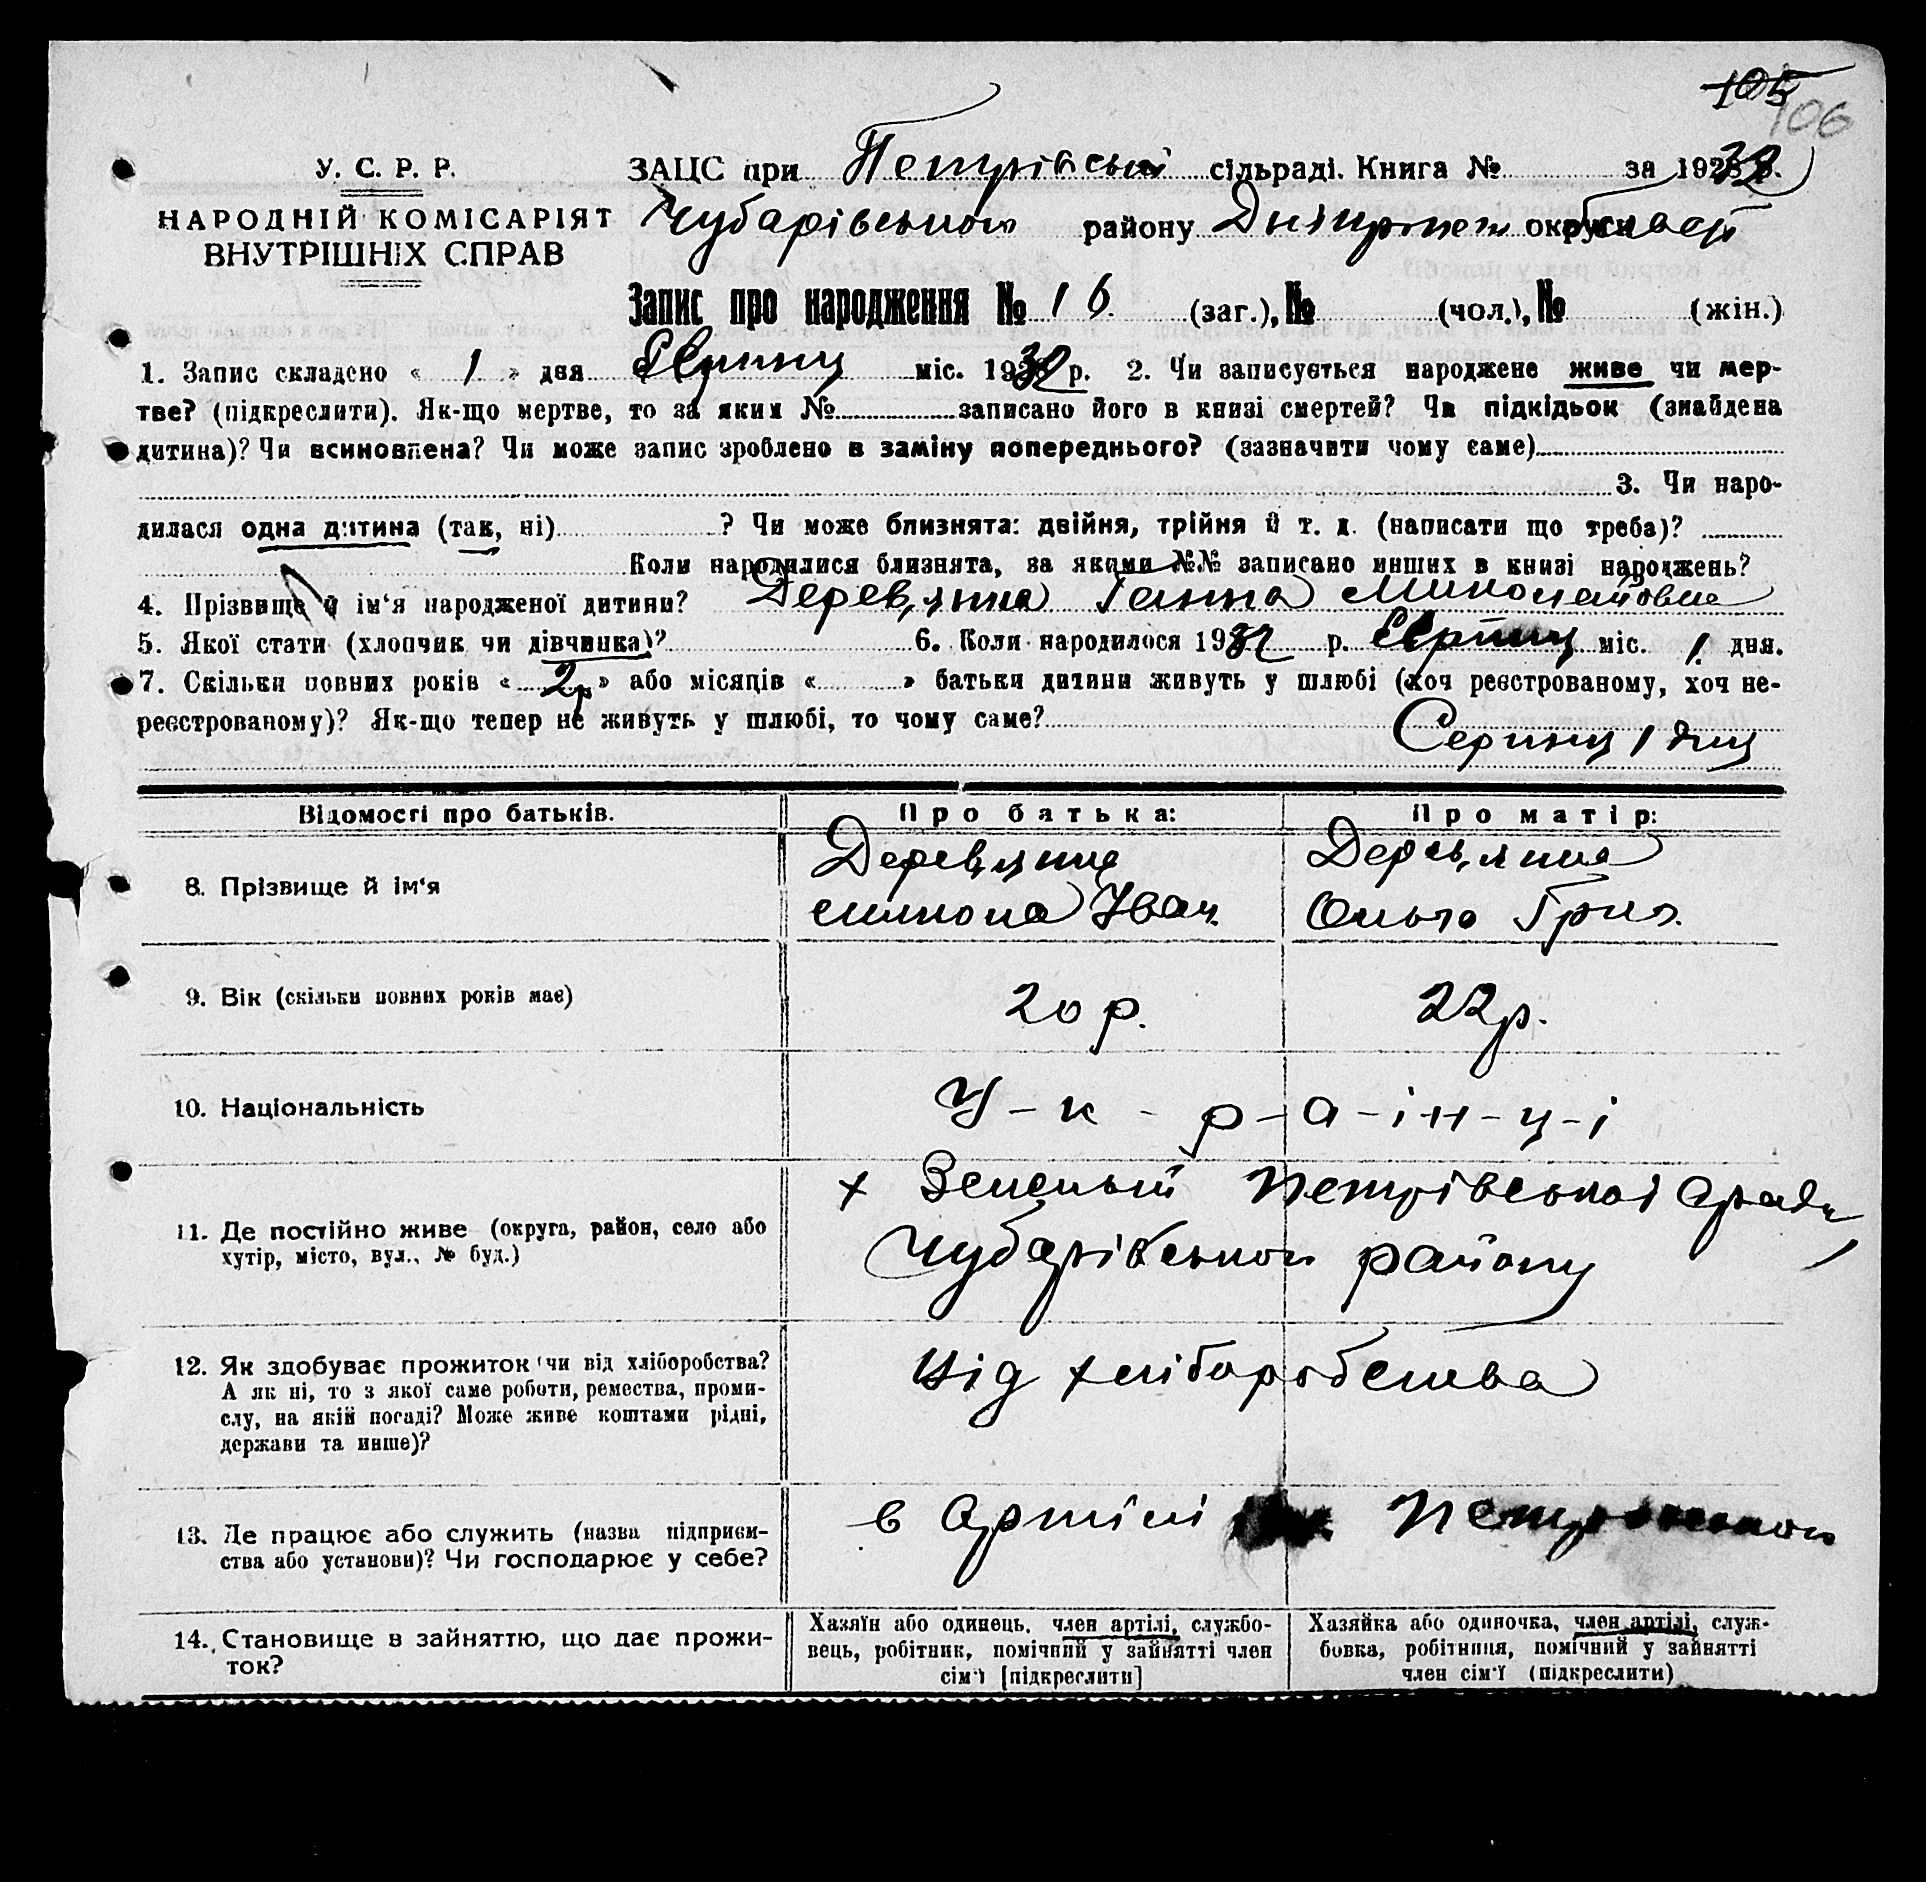 105
106
У. С. Р. Р.
НАРОДНІЙ КОМІСАРІЯТ
ВНУТРІШНІХ СПРАВ
ЗАЦС при Петрівській сільраді. Книга № за 1932 р.
Чубарівського району Дніпропет області
Запис про народження № 16 (заг.), № (чол.), № (жін.)
1. Запис складено « 1 » дня Серпня міс. 1932 р. 2. Чи записується народжене живе чи мер-
тве? (підкреслити). Як-що мертве, то за яким № записано його в книзі смертей? Чи підкідьок (знайдена
дитина)? Чи всиновлена? Чи може запис зроблено в заміну попереднього? (зазначити чому саме)
3. Чи наро-
дилася одна дитина (так, ні) ? Чи може близнята: двійня, трійня й т. д. (написати що треба)?
Коли народилися близнята, за якими №№ записано инших в книзі народжень?
4. Прізвище й ім'я народженої дитини? Дерев,янна Ганна Миколаївна
5. Якої стати (хлопчик чи дівчинка)? 6. Коли народилося 1932 р. Серпня міс. 1. дня.
7. Скільки повних років « 2р » або місяців « » батьки дитини живуть у шлюбі (хоч реєстрованому, хоч не-
реєстрованому)? Як-що тепер не живуть у шлюбі, то чому саме?
Серпня 1 дня
Відомості про батьків. Про батька: Про матір:
8. Прізвище й ім'я
Дерев,янна
Микола Іван.
Дерев,янна
Ольга Григ.
9. Вік (скільки повних років має) 20 р. 22 р.
10. Національність У-к-р-а-ї-н-ц-і
11. Де постійно живе (округа, район, село або
хутір, місто, вул., № буд.)
х Зелений Петрівської с/ради
Чубарівського району
12. Як здобуває прожиток чи від хліборобства?
А як ні, то з якої саме роботи, ремества, проми-
слу, на якій посаді? Може живе коштами рідні,
держави та инше)?
Від хліборобства
13. Де працює або служить (назва підприєм-
ства або установи)? Чи господарює у себе?
в Артілі
14. Становище в зайняттю, що дає прожи-
ток?
Хазяїн або одинець, член артілі, службо-
вець, робітник, помічний у зайнятті член
сім'ї [підкреслити]
Хазяйка або одиночка, член артілі, служ-
бовка, робітниця, помічний у зайнятті
член сім'ї (підкреслити)